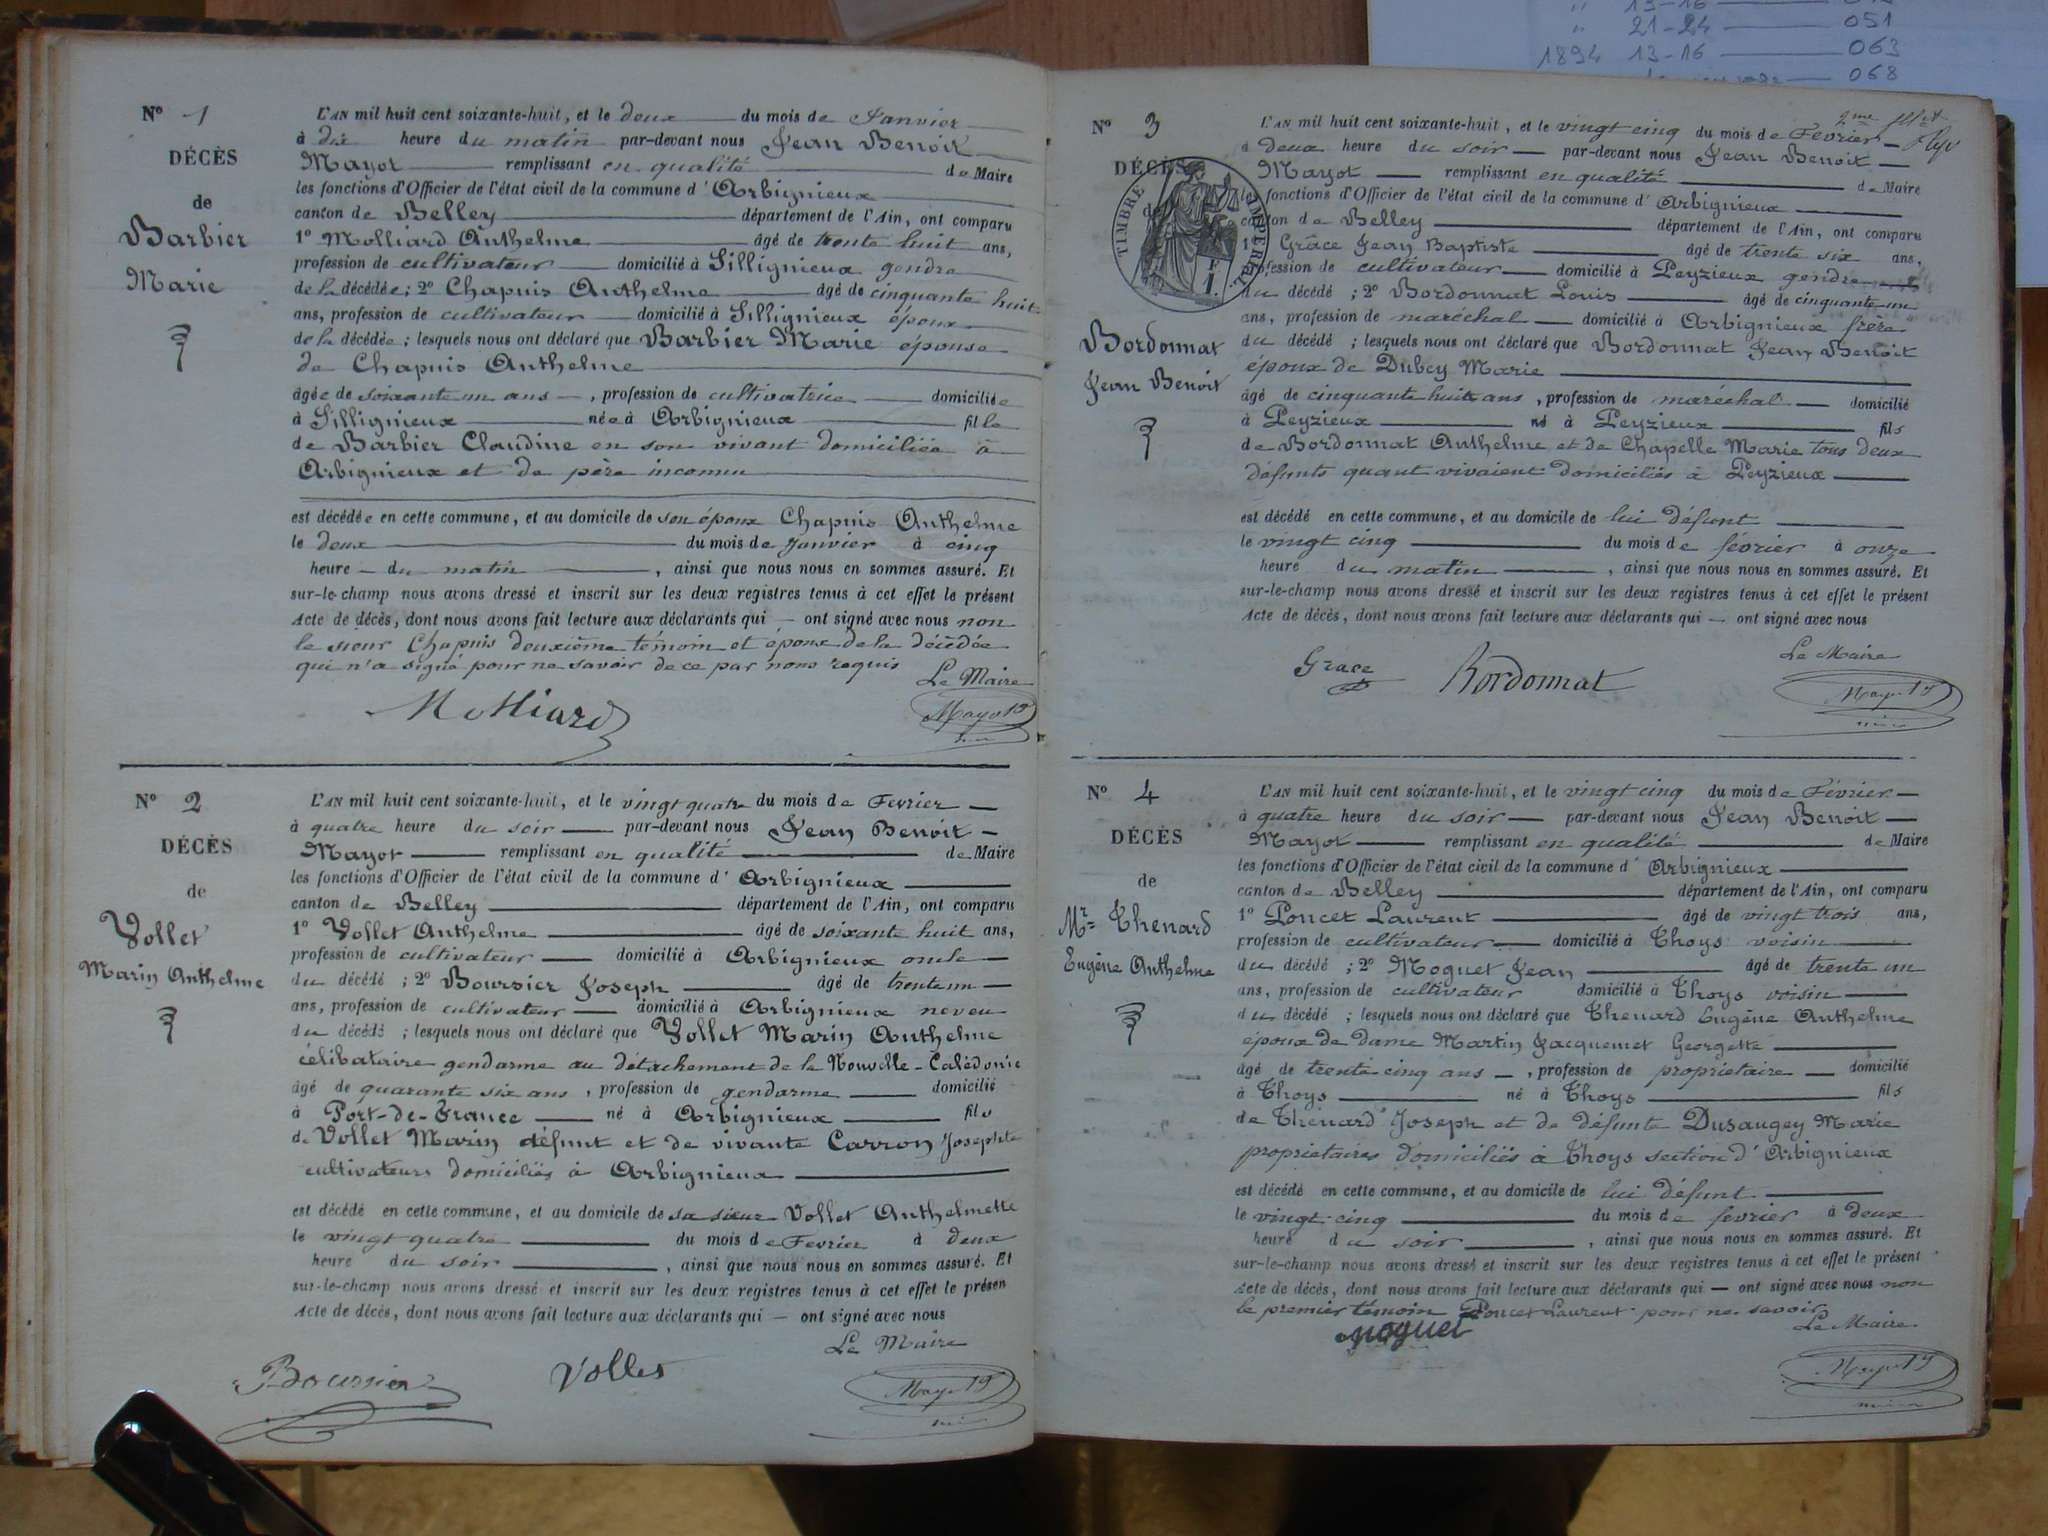 13-16 —
" 21-24 — 051
1894 13-16 — 063
068
N° 1
DÉCÈS
de
Barbier
Marie
L'AN mil huit cent soixante-huit, et le deux du mois de Janvier
à dix heure du matin par-devant nous Jean Benoit
Mayot remplissant en qualité de Maire
les fonctions d'Officier de l'état civil de la commune d' Arbignieux
canton de Belley département de l'Ain, ont comparu
1° Molliard Anthelme âgé de trente huit ans,
profession de cultivateur domicilié à Sillignieux gendre
de la décédée; 2° Chapuis Anthelme âgé de cinquante huit
ans, profession de cultivateur domicilié à Sillignieux époux
de la décédée; lesquels nous ont déclaré que Barbier Marie épouse
de Chapuis Anthelme
âgée de soixante un ans, profession de cultivatrice domiciliée
à Sillignieux née à Arbignieux fille
de Barbier Claudine en son vivant domiciliée à
Arbignieux et de père inconnu
est décédée en cette commune, et au domicile de son époux Chapuis Anthelme
le deux du mois de Janvier à cinq
heure du matin, ainsi que nous nous en sommes assuré. Et
sur-le-champ nous avons dressé et inscrit sur les deux registres tenus à cet effet le présent
Acte de décès, dont nous avons fait lecture aux déclarants qui — ont signé avec nous non
le sieur Chapuis deuxième témoin et époux de la décédée
qui n'a signé pour ne savoir de ce par nous requis
Le Maire
Molliard Mayot
N° 2
DÉCÈS
de
Vollet
Marin Anthelme
L'AN mil huit cent soixante-huit, et le vingt quatre du mois de Fevrier
à quatre heure du soir par-devant nous Jean Benoit
Mayot remplissant en qualité de Maire
les fonctions d'Officier de l'état civil de la commune d' Arbignieux
canton de Belley département de l'Ain, ont comparu
1° Vollet Anthelme âgé de soixante huit ans,
profession de cultivateur domicilié à Arbignieux oncle
du décédé; 2° Boursier Joseph âgé de trente un
ans, profession de cultivateur domicilié à Arbignieux neveu
du décédé; lesquels nous ont déclaré que Vollet Marin Anthelme
célibataire gendarme au détachement de la Nouvelle-Calédonie
âgé de quarante six ans, profession de gendarme domicilié
à Port-de-France né à Arbignieux fils
de Vollet Marin défunt et de vivante Carron Josephte
cultivateurs domiciliés à Arbignieux
est décédé en cette commune, et au domicile de sa sieur Vollet Anthelmette
le vingt quatre du mois de Fevrier à deux
heure du soir, ainsi que nous nous en sommes assuré. Et
sur-le-champ nous avons dressé et inscrit sur les deux registres tenus à cet effet le présen
Acte de décès, dont nous avons fait lecture aux déclarants qui — ont signé avec nous
Le Maire
Boursier Vollet Mayot
N° 3
DÉCÈS
de
TIMBRE IMPÉRIAL
F.
1.
Bordonnat
Jean Benoit
2me
L'AN mil huit cent soixante-huit, et le vingt cinq du mois de Fevrier
à deux heure du soir par-devant nous Jean Benoit
Mayot remplissant en qualité de Maire
les fonctions d'Officier de l'état civil de la commune d' Arbignieux
canton de Belley département de l'Ain, ont comparu
1° Grâce Jean Baptiste âgé de trente six ans,
profession de cultivateur domicilié à Peyzieux gendre
du décédé; 2° Bordonnat Louis âgé de cinquante un
ans, profession de maréchal domicilié à Arbignieux frère
du décédé; lesquels nous ont déclaré que Bordonnat Jean Benoit
époux de Dubey Marie
âgé de cinquante huit ans, profession de maréchal domicilié
à Peyzieux né à Peyzieux fils
de Bordonnat Anthelme et de Chapelle Marie tous deux
défunts quant vivaient domiciliés à Peyzieux
est décédé en cette commune, et au domicile de lui défunt
le vingt cinq du mois de février à onze
heure du matin, ainsi que nous nous en sommes assuré. Et
sur-le-champ nous avons dressé et inscrit sur les deux registres tenus à cet effet le présent
Acte de décès, dont nous avons fait lecture aux déclarants qui — ont signé avec nous
Le Maire
Grace Bordonnat Mayot
N° 4
DÉCÈS
de
Mr Thenard
Eugène Anthelme
L'AN mil huit cent soixante-huit, et le vingt cinq du mois de Février
à quatre heure du soir par-devant nous Jean Benoit
Mayot remplissant en qualité de Maire
les fonctions d'Officier de l'état civil de la commune d' Arbignieux
canton de Belley département de l'Ain, ont comparu
1° Poncet Laurent âgé de vingt trois ans,
profession de cultivateur domicilié à Thoys voisin
du décédé; 2° Moguet Jean âgé de trente un
ans, profession de cultivateur domicilié à Thoys voisin
du décédé; lesquels nous ont déclaré que Thenard Eugène Anthelme
époux de dame Martin Jacquemet Georgette
âgé de trente cinq ans, profession de proprietaire domicilié
à Thoys né à Thoys fils
de Thénard Joseph et de défunte Dusaugey Marie
proprietaires domiciliés à Thoys section d'Arbignieux
est décédé en cette commune, et au domicile de lui défunt
le vingt cinq du mois de fevrier à deux
heure du soir, ainsi que nous nous en sommes assuré. Et
sur-le-champ nous avons dressé et inscrit sur les deux registres tenus à cet effet le présent
Acte de décès, dont nous avons fait lecture aux déclarants qui — ont signé avec nous non
le premier témoin Poncet Laurent pour ne savoir
Le Maire
Moguet Mayot